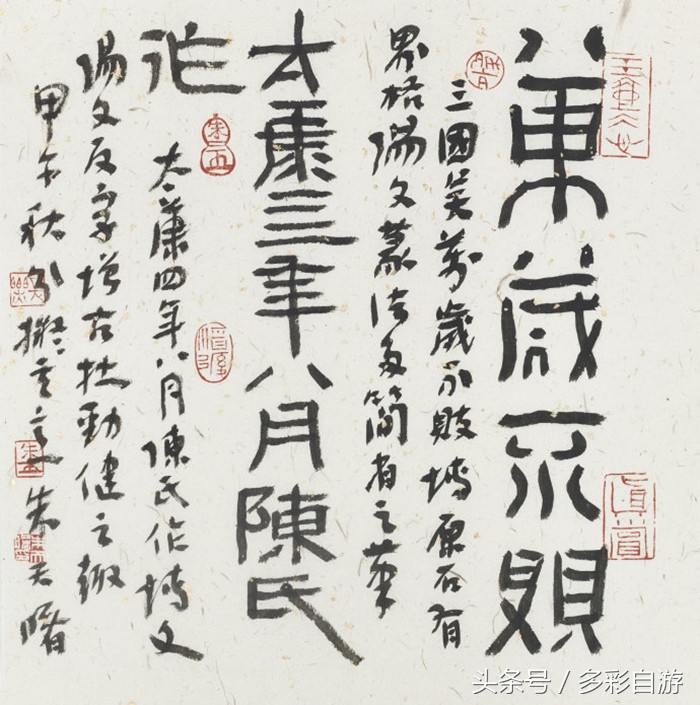 萬歲不敗
三國吳萬歲不敗塼原石有
界格陽文篆法多簡省之筆
太康三年八月陳氏
作
太康四年八月陳氏作塼文
陽文反字增古拙勁健之趣
甲午秋分擬之 朱天曙
头条号 / 多彩自游